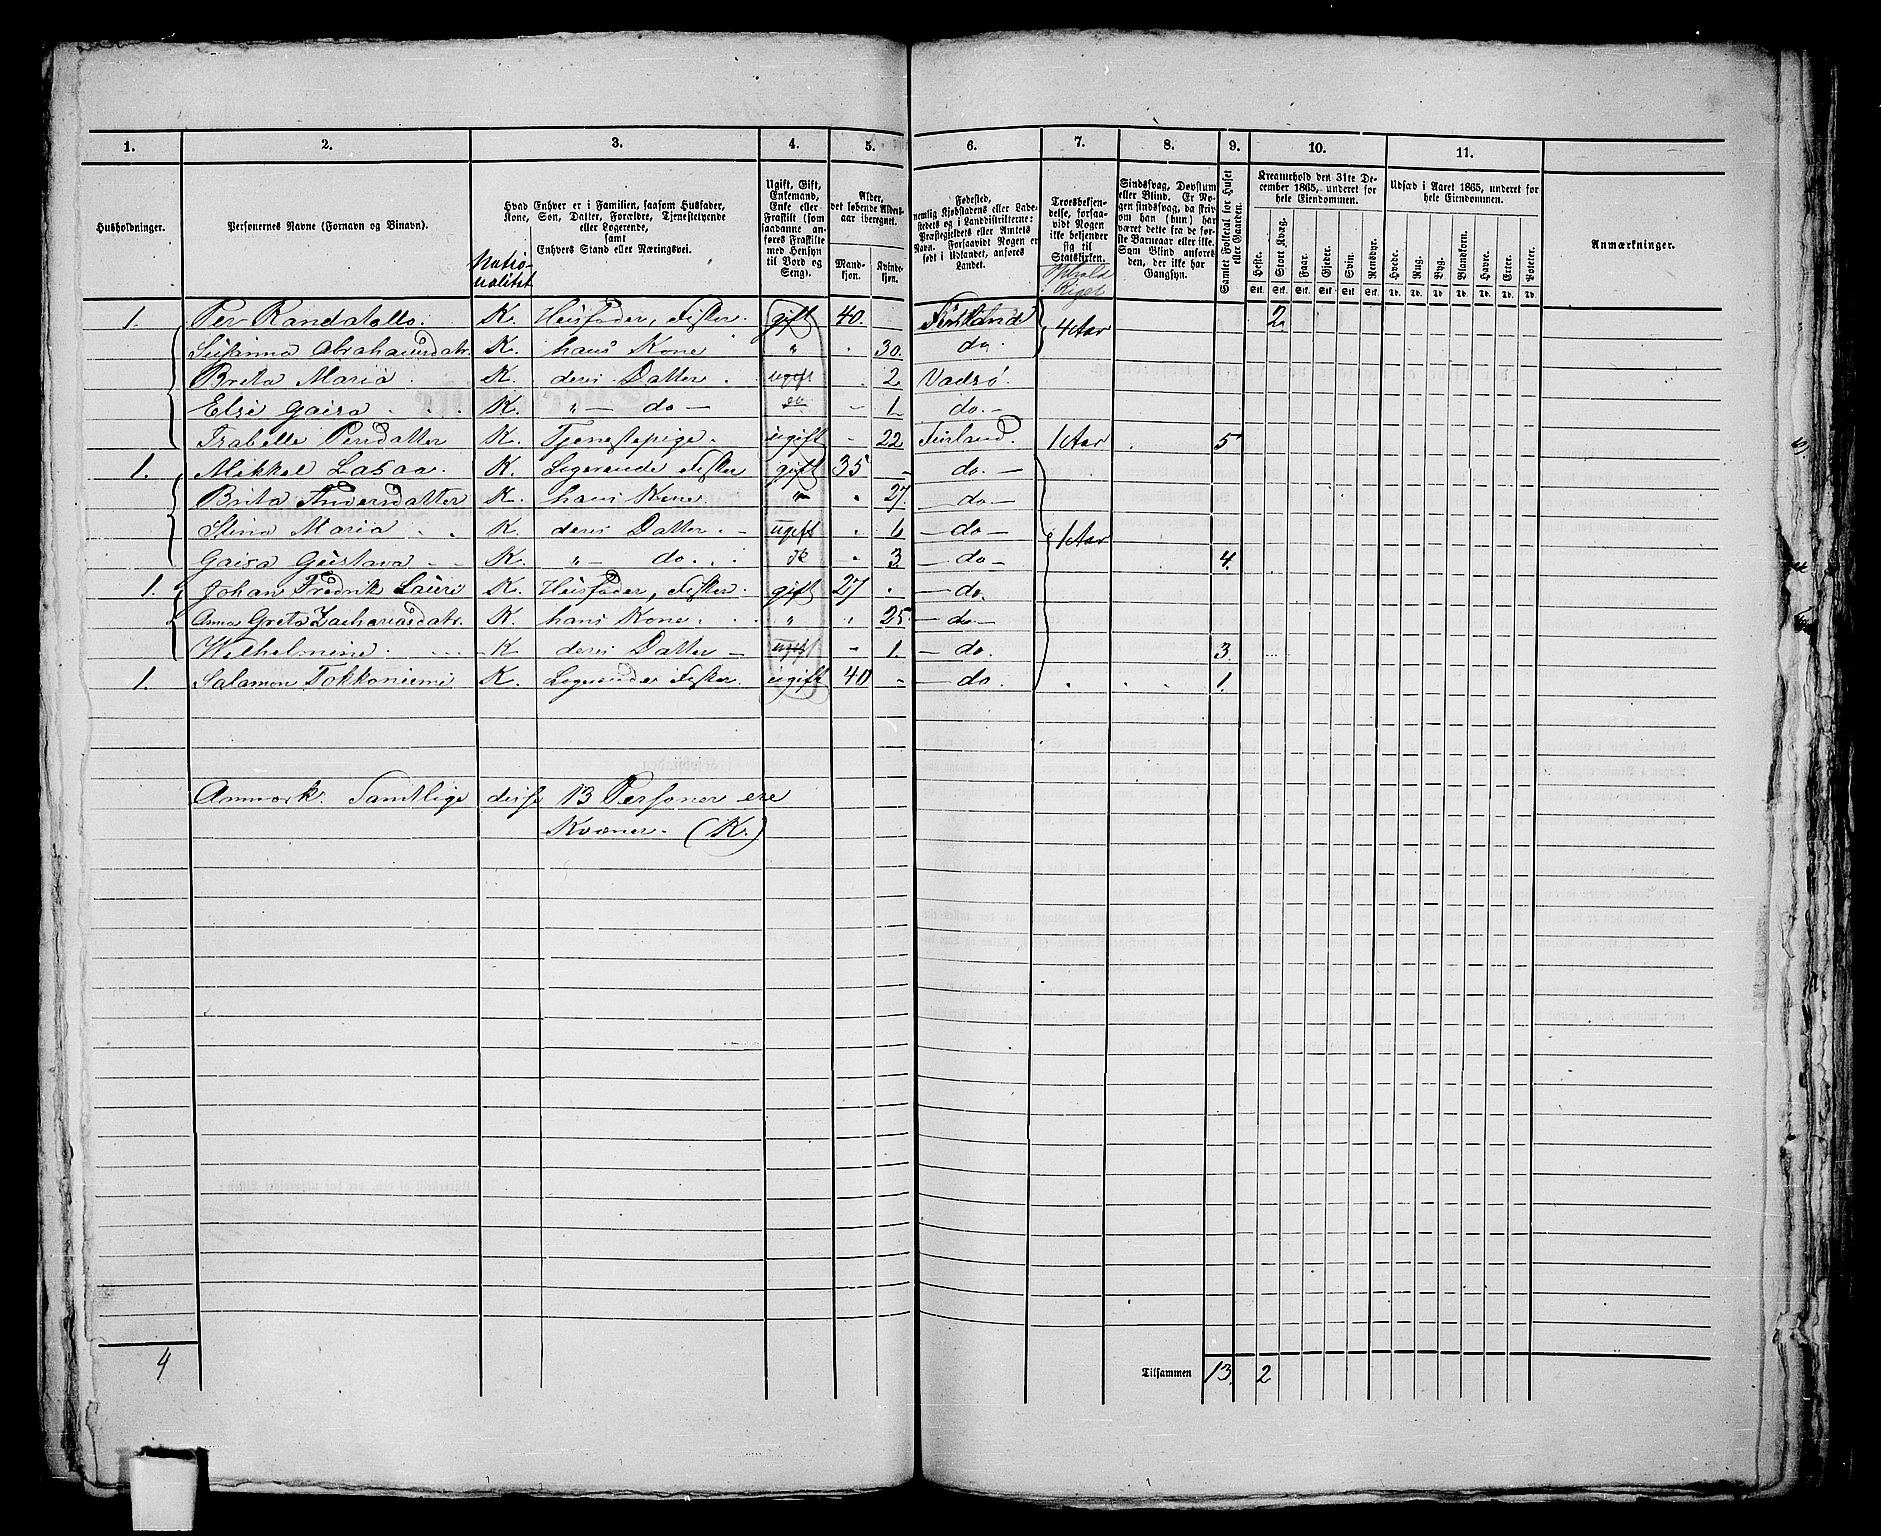 1. 2. 3. 4. 5. 6. 7. 8. 9. 10. 11.
Husholdninger.
Personernes Navne (Fornavn og Binavn).
Hvad Enhver er i Familien, saasom Husfader, Kone, Søn, Datter, Forældre, Tjenestetyende eller Logerende, samt Enhvers Stand eller Næringsvei.
Natio-
nalitet
Ugift, Gift, Enkemand, Enke eller Fraskilt (som saadanne anføres Fraskilte med Hensyn til Bord og Seng).
Alder, det løbende Aldersaar iberegnet.
Mandkjøn. Kvindekjøn.
Fødested, nemlig Kjøbstadens eller Ladestedets og i Landdistrikterne: Præstegjeldets eller Amtets Navn. Forsaavidt Nogen er født i Udlandet, anføres Landet.
Troesbekjendelse, forsaavidt Nogen ikke bekjender sig til Statskirken.
Ophold i
Riget
Sindssvag, Døvstum eller Blind. Er Nogen sindssvag, da skrives om han (hun) har været dette fra de første Barneaar eller ikke. Som Blind ansøres den, der ikke har Gangsyn.
Samlet Folketal for Huset eller Gaarden.
Kreaturhold den 31te December 1865, underet for hele Eiendommen.
Heste. Stort Kvæg. Faar. Gjeder. Svin. Rensdyr.
Udsæd i Aaret 1865, underet for hele Eiendommen.
Hvede. Rug. Byg. Blandkorn. Havre. Erter. Poteter.
Anmærkninger.
1. Per Randatallo. K. Husfader, Fisker. gift 40. Finland 4 Aar 2
Susanna Abrahamsdatr. K. hans Kone " 30. do.
Brita Maria. K. deres Datter ugift 2 Vadsø.
Else Gaisa K. " — do — do 1 do. —
Isabelle Persdatter K. Tjenestepige. ugift 22 Finland. 1 Aar 5
1. Mikkel Lasaa. K. Logerende Fisker gift 35 do. —
Brita Andersdatter K. hans Kone. " 27. — do —
Stina Maria K. deres Datter. — ugift 6 — do —
Gaisa Gustava K " — do. 3 — do — 1 Aar 4.
1. Johan Fredrik Lauri K. Husfader, Fisker. gift 27 — do.
Anna Greta Zachariasdatr. K. hans Kone. " 25. — do —
Wilhelmine K. deres Datter — ugift 1. — do. 3.
1. Salamon Tokkoniemi K. Logerende Fisker. ugift 40 — do. 1.
Anmærk. Samtlige disse 13 Personer ere
Kvæner. (K.)
4 Tilsammen 13. 2